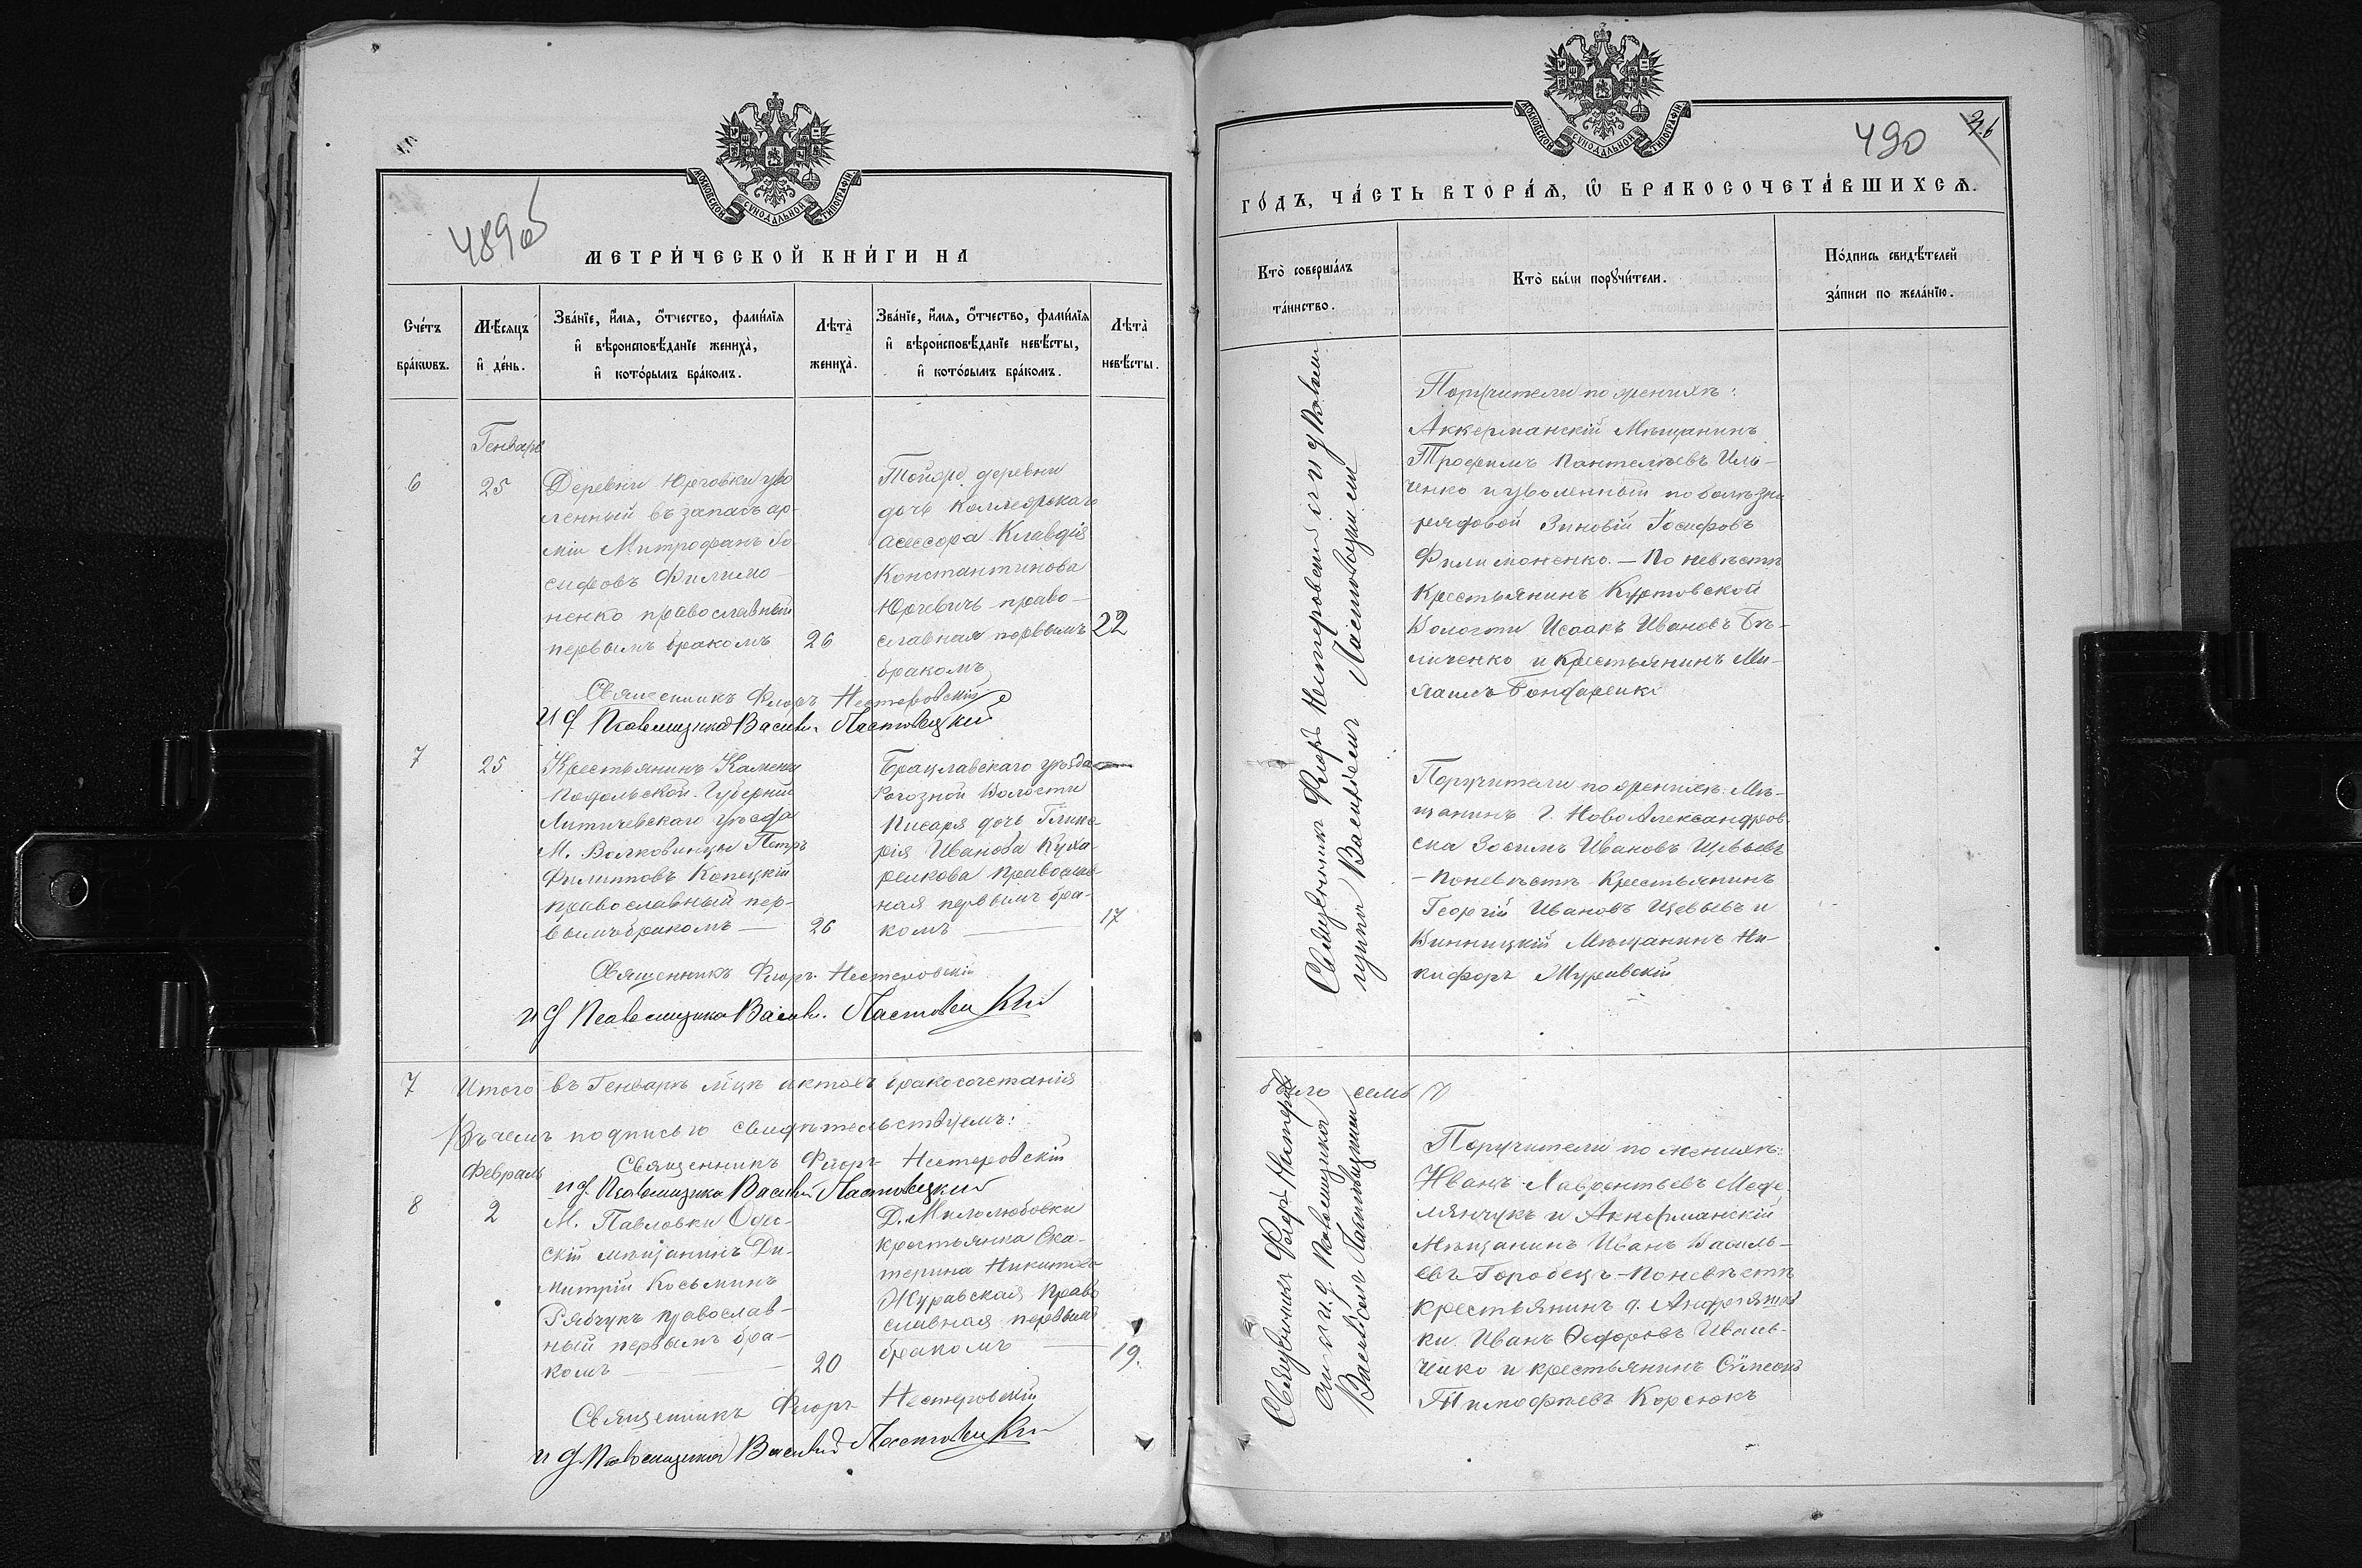 489об
МЕТРИ́ЧЕСКОЙ КНИ́ГИ НА
Сче́тъ бра́кѡвъ.
Мѣ́сяцъ и҆ де́нь.
Зва́нїе, и҆́мя, ѻ҆́тчество, фами́лїя
и҆ вѣроисповѣ́данїе жениха̀,
и҆ кото́рымъ бра́комъ.
Лѣта̀ жениха̀.
Зва́нїе, и҆́мя, ѻ҆́тчество, фами́лїя
и҆ вѣроисповѣ́данїе невѣ́сты,
и҆ кото́рымъ бра́комъ.
Лѣта̀ невѣ́сты.
Генварь
6
25
Деревни Юрчовки уво
ленный въ запасъ ар-
міи Митрофанъ Іо
сифовъ Филимо-
ненко православный
первымъ бракомъ
26
Тойже деревни
дочь Коллежскаго
асессора Клавдія
Константинова
Юрчевичъ право-
славная первымъ
бракомъ
22
Священникъ Флоръ Нестеровскій
и д. Псаломщика Василій Ластовецкій
7
25
Крестьянинъ Каменец
Подольской Губерніи
Литичевскаго уѣзда
М. Волковинцы Петръ
Филипповъ Копецкій
православный пер-
вымъ бракомъ —
26
Брацлавскаго уѣзда
Рогозной Волости
Писаря дочь Глике-
рія Иванова Куха-
ренкова Правосла-
ная первымъ бра-
комъ —
17
Священникъ Флоръ Нестеровскій
и д Псаломщика Василій Ластовецкій
7 Итого въ Генварѣ мцѣ актовъ бракосочетанія
Въ чемъ подписью свидѣтельствуемъ:
Священникъ Флоръ Нестеровскій
и д. Псаломщика Василій Ластовецкій
Февраль
8
2
М. Павловки Одес-
скій мѣщанинъ Ди-
митрій Косьминъ
Рябчукъ православ-
ный первымъ бра-
комъ —
20
Д. Миролюбовки
крестьянка Ека-
терина Никитова
Журавская Право
славная первымъ
бракомъ —
19.
Священникъ Флоръ Нестеровскій
и д Псаломщика Василій Ластовецкій
МОСКОВСКОЙ СѴНОДАЛЬНОЙ ТИПОГРАФІИ
490
ГО́ДЪ, ЧА́СТЬ ВТОРА́Я, Ѡ҆ БРАКОСОЧЕТА́ВШИХСЯ.
Кто̀ соверша́лъ та́инство.
Кто̀ бы́ли порꙋчи́тели.
По́дпись свидѣ́телей за́писи по жела́нїю.
Священникъ Флоръ Нестеровскій
Василіемъ Ластовецкимъ
Поручители по женихѣ:
Аккерманскій Мѣщанинъ
Трофимъ Пантелѣевъ Иль-
ченко и уволенный по болѣзни
рядовой Зиновій Іосифовъ
Филимоненко. — По невѣстѣ
Крестьянинъ Куртовской
Волости Исаакъ Ивановъ Бѣ-
личенко и Крестьянинъ Ми-
хаилъ Бондаренко
Поручители по женихѣ: Мѣ-
щанинъ г. НовоАлександров-
ска Зосимъ Ивановъ Щевьевъ
— По невѣстѣ Крестьянинъ
Георгій Ивановъ Щевьевъ и
Винницкій Мѣщанинъ Ни-
кифоръ Журавскій
было семь 7
Священникъ Флоръ Нестеровскій
и д. Псаломщика
Василіемъ Ластовецкимъ
Поручители по женихѣ:
Иванъ Лаврентьевъ Меде-
лянчукъ и Аккерманскій
Мѣщанинъ Иванъ Василь-
евъ Горобецъ — По невѣстѣ
крестьянинъ д. Андріяшев
ки Иванъ Ѳедоровъ Иваль-
ченко и крестьянинъ Сѵмеонъ
Тимофѣевъ Корсюкъ
МОСКОВСКОЙ СѴНОДАЛЬНОЙ ТИПОГРАФІИ